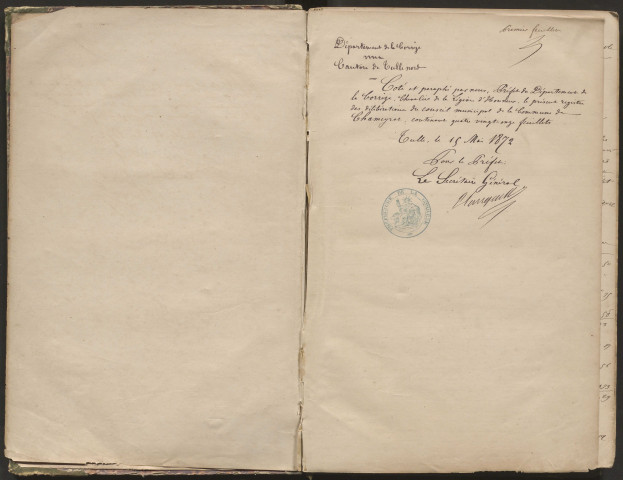 premier feuillet
Département de la Corrèze
Canton de Tulle nord
Coté et paraphé par nous, Préfet du Département de
la Corrèze, Chevalier de la Légion d'Honneur, le présent registre
des délibérations du conseil municipal de la Commune de
Chameyrat, contenant quatre vingt onze feuillets.
Tulle, le 15 Mai 1872
Pour le Préfet.
Le Secrétaire Général
PRÉFECTURE DE LA CORRÈZE